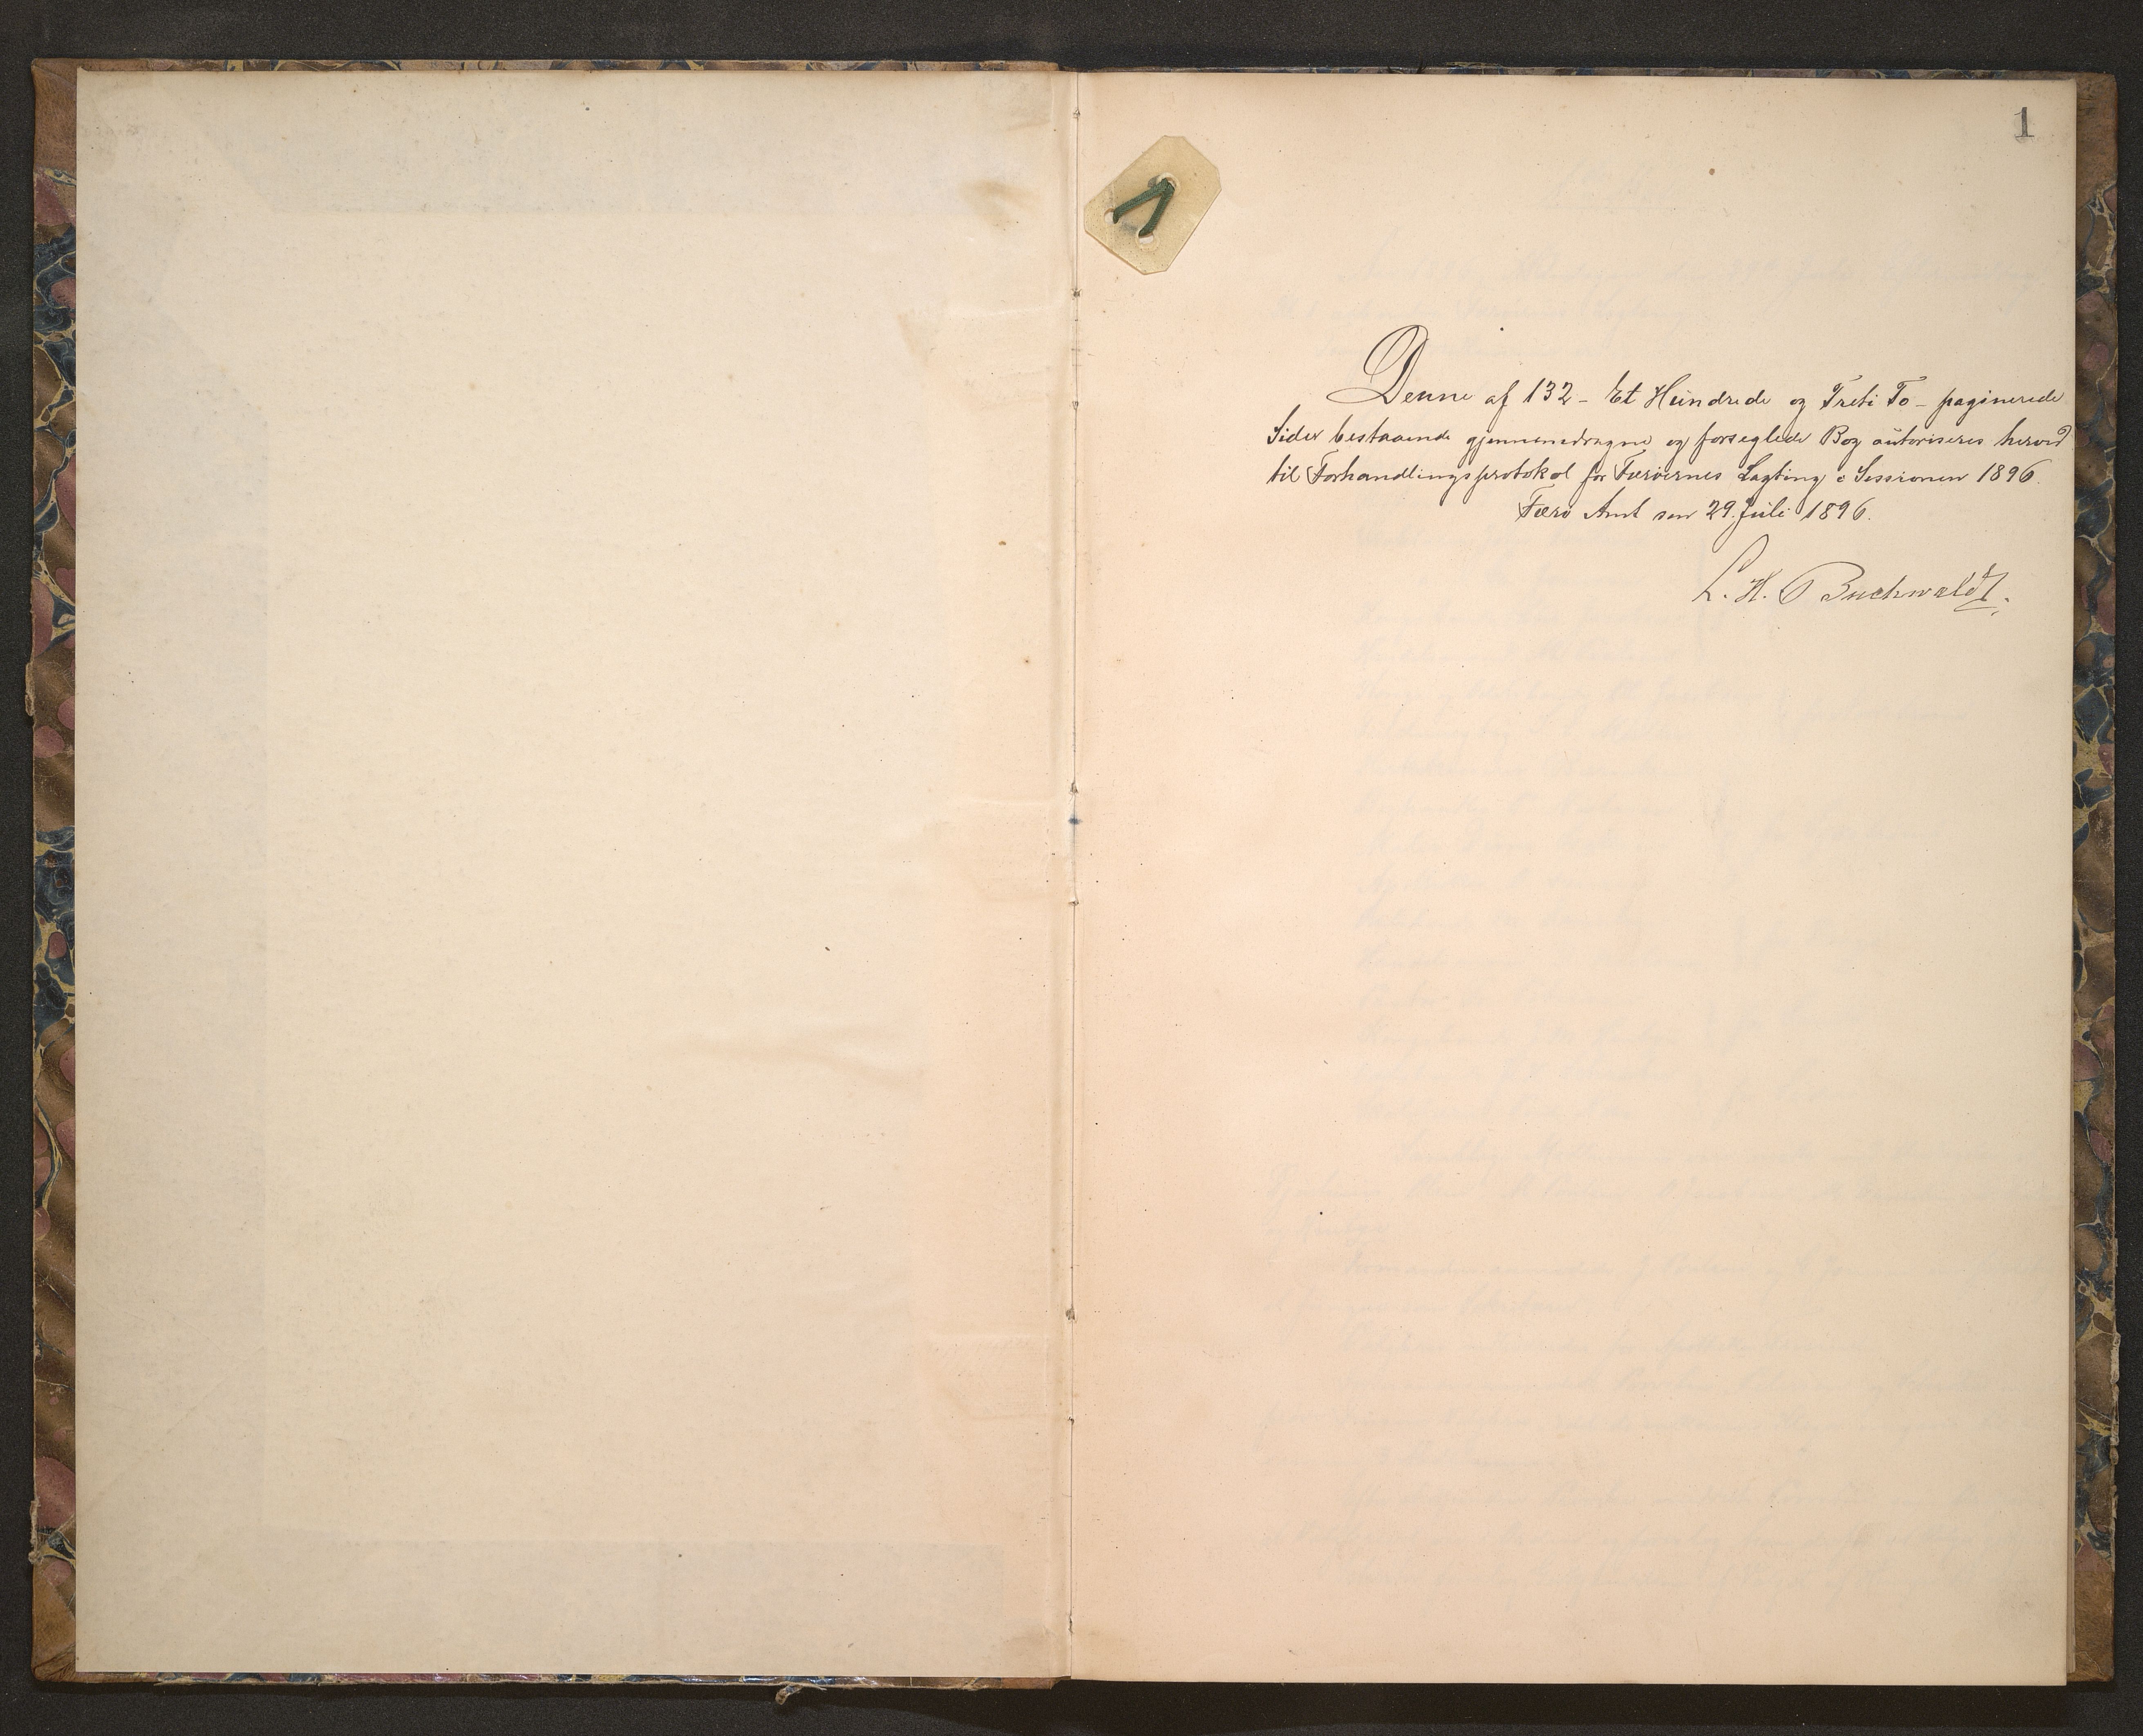 1
Denne af 132 - Et Hundrede og Treti To - paginerede
Sider bestaaende gjennemdragne og forseglede Bog autoriseres herved
til Forhandlingsprotokol for Færøernes Lagting i Sessionen 1896.
Færø Amt den 29. Juli 1896.
L. H. Buchwaldt.